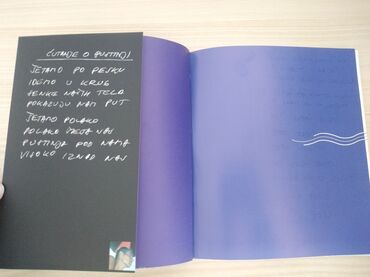 ĆUTANJE O PUSTINJI
ŠETAMO PO PESKU
IDEMO U KRUG
SENKE NAŠIH TELA
POKAZUJU NAM PUT
ŠETAMO POLAKO
POLAKO VREJA NAS
PUSTINJA POD NAMA
VISOKO IZNAD NAS